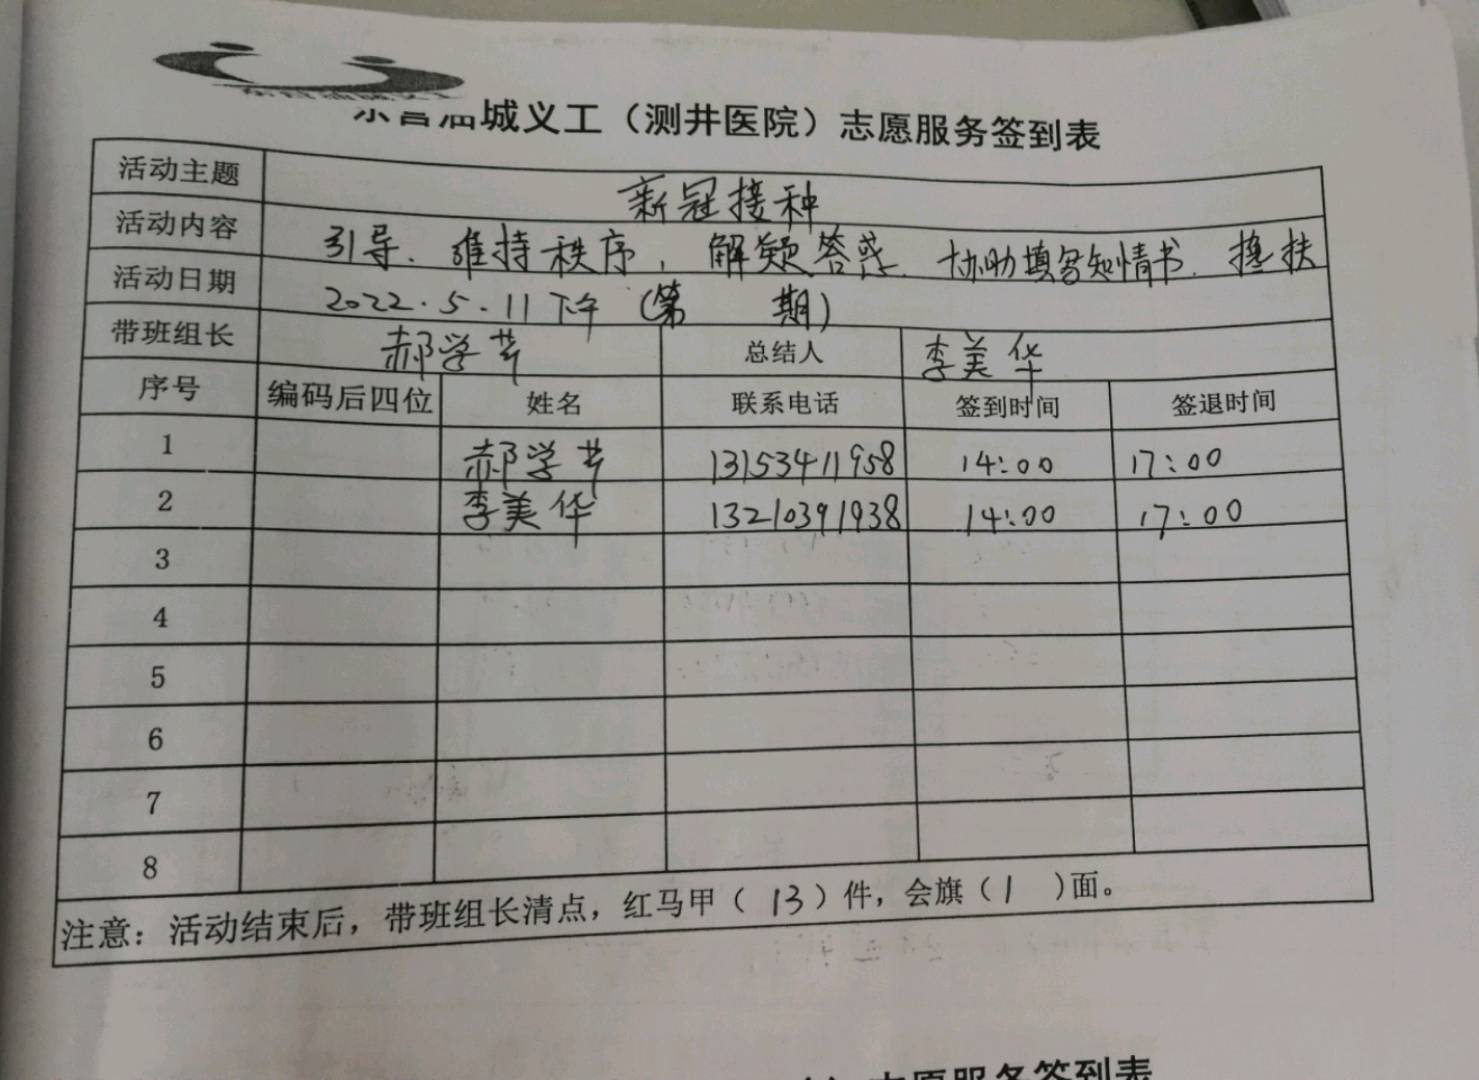 东营油城义工
东营油城义工（测井医院）志愿服务签到表
活动主题 新冠接种
活动内容 引导、维持秩序，解疑答惑、协助填写知情书、搀扶
活动日期 2022.5.11下午（第 期）
带班组长 郝学芳 总结人 李美华
序号 编码后四位 姓名 联系电话 签到时间 签退时间
1 郝学芳 13153411958 14:00 17:00
2 李美华 13210391938 14:00 17:00
3
4
5
6
7
8
注意：活动结束后，带班组长清点，红马甲（13）件，会旗（1 ）面。
志愿服务签到表